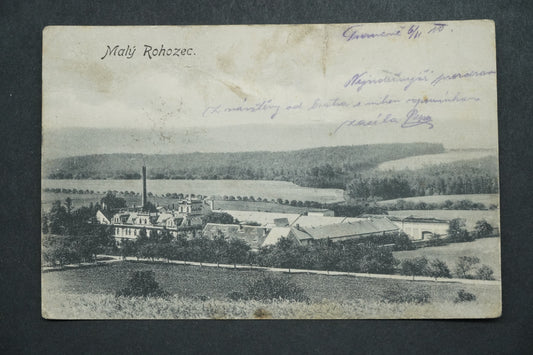 Malý Rohozec.
6/11 10.
Nejsrdečnější pozdrav
z návštěvy od bratra s milou vzpomínkou
zasílá